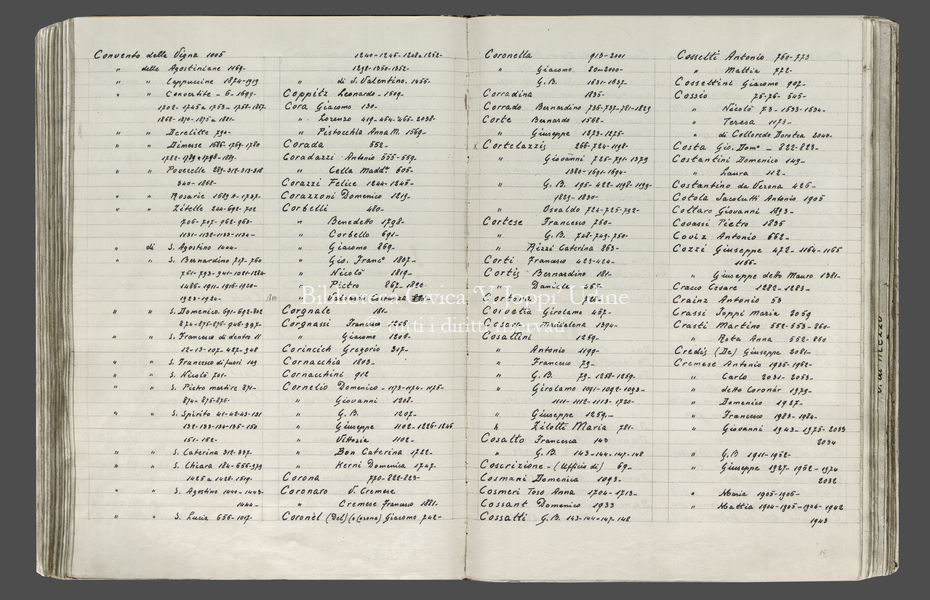 Convento delle Vigna 1005
" delle Agostiniane 1169-
" " Cappuccine 1874-1919
" " Convertite - 6-1699-
" " Derelitte 790-
" " Dimesse 1686-1769-1780
" " Poverelle 289-312-313-318
340-1862-
" " Rosarie
" " Zitelle 244-692-702
706-707-962-963-
1131-1132-1133-1134-
" di S. Agostino 1444-
" " S. Bernardino 717-760
761-793-941-1021-1220
1923-1924-
" " S. Domenico 691-692-812
874-875-876-946-997-
" " S. Francesco di dentro 11
12-13-107-427-948
" " S. Francesco di fuori 109
" " S. Nicolò 701-
" " S. Pietro martire 871-
874-875-876-
" " S. Spirito 41-42-43-131
132-133-134-135-150
151-162-
" " S. Caterina 312-337-
" " S. Chiara 184-656-979
1425 a 1428-1519-
" " S. Agostino 1440-1443-
1444-
" " S. Lucia 656-1017-
1240-1245-1248-1252-
1298-1350-1352-
" di S. Valentino. 1056-
Coppitz Leonardo - 1509-
Cora Giacomo 130-
" Lorenzo 419-464-465-2038-
" Pistocchia Anna M. 1569-
Corada 552-
Coradazzi Antonio 555-559-
" Cella Maddª 605-
Corazzi Felice 1244-1245-
Corazzoni Domenico 1219-
Corbelli 480-
" Benedetto 1798-
" Corbello 691-
" Giacomo 269-
" Gio. Francº 1807-
" Nicolò 1819-
" Pietro 867-1820-
Corgnale 181-
Corgnassi Francesco 1206
" Giacomo 1208-
Corincich Gregorio 317-
Cornacchia 1803-
Cornacchini 912
Cornelio Domenico - 1173-1174-1175-
" Giovanni 1208-
" G.B. 1207-
" Giuseppe 1102-1226-1246
" Vittoria 1102-
" Bon Caterina 1722-
" Kerni Domenica 1747-
Corona 770-822-823-
Coronaro V. Cremese
" Cremese Francesco 1881-
Coronel (Del) (o Corona) Giacomo 742-
Coronella 919-2001
" Giacomo 2000-2001-
" G.B. 1631-1637-
Corradina 1835-
Corrado Bernardino 736-737-781-1829
Corte Bernardo 1562-
" Giuseppe 1273-1275-
Cortelazzis 266-724-1198-
" Giovanni 725-791-1379
1380-1691-1694-
" G.B. 195-422-1198-1199-
1829-1830-
" Osvaldo 724-725-792-
Cortese Francesco 750-
" G.B. 748-749-750-
" Rizzi Caterina 263-
Corti Francesco 423-424-
Cortis Bernardino 181-
" Daniele 465-
Cortona 781-
Corvetta Girolamo 457-
Cosattini 1269-
" Antonio 1190-
" Francesco 79-
" G.B. 79-1268-1269-
" Girolamo 1091-1092-1093-
1111-1112-1113-1720-
" Giuseppe 1269-
" Zilotti Maria 781-
Cosatto Francesca 143
" G.B. 143-144-147-148
Coscrizione - (Ufficio di) 69-
Cosmani Domenica 1093-
Cosmeri Toso Anna 1704-1713-
Cossant Domenico 1933
Cossatti G.B. 143-144-147-148
Cossetti Antonio 760-773
" Mattia 772-
Cossettini Giacomo 907-
Cossio 75-76-545-
" Nicolò 73-1533-1534-
" Teresa 1173-
" di Colloredo Dorotea 2040-
Costa Gio. Domº - 822-823-
Costantini Domenico 149-
" Laura 112-
Costantino da Verona 426-
Cotola Iacolutti Antonio 1905
Cottaro Giovanni 1893-
Covassi Pietro 1835
Coviz Antonio 662-
Cozzi Giuseppe 472-1164-1165
1166-
" Giuseppe detto Mauro 1381-
Cracco Cesare 1282-1283-
Crainz Antonio 53
Crassi Joppi Maria 2059
Crasti Martino 552-553-861-
" Rota Anna 552-860
Credis (De) Giuseppe 2081-
Cremese Antonio 1935-1962-
" Carlo 2031-2053-
" detto Coronâr 1979-
" Domenico 1927-
" Francesco 1983-1984-
" Giovanni 1943-1975-2033
2034
" G.B 1911-1952-
" Giuseppe 1927-1962-1974
2032
" Maria 1905-1906-
" Mattia 1904-1905-1906-1942
1943
Biblioteca Civica "V. Joppi" Udine
tutti i diritti riservati